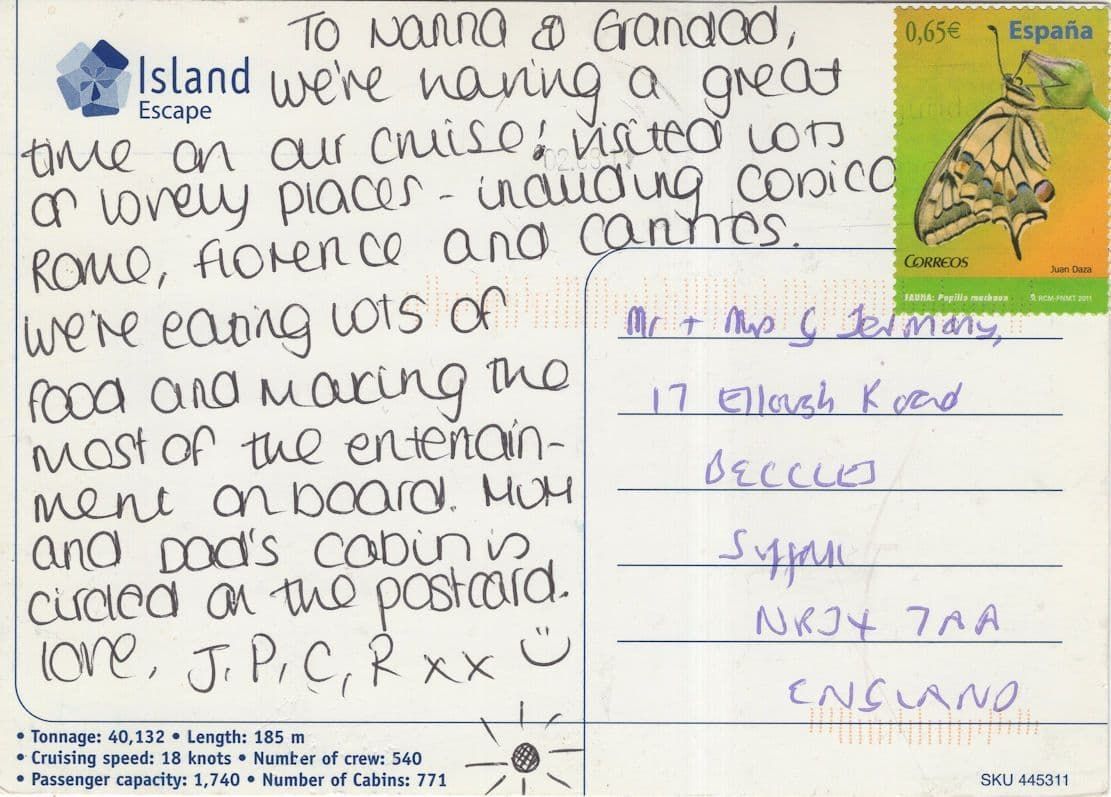 To Nanna & Grandad,
we're having a great
time on our cruise! visited lots
of lovely places - including Corsica
Rome, Florence and Cannes.
we're eating lots of
food and making the
most of the entertain-
ment on board. Mum
and Dad's cabin is
circled on the postcard.
love, J, P, C, R x x
Island
Escape
0,65€ España
CORREOS
Juan Daza
FAUNA: Papilio machaon RCM-FNMT 2011
Mr + Mrs G Jermany,
17 Ellough Road
BECCLES
Suffolk
7AA
ENGLAND
• Tonnage: 40,132 • Length: 185 m
• Cruising speed: 18 knots • Number of crew: 540
• Passenger capacity: 1,740 • Number of Cabins: 771
SKU 445311